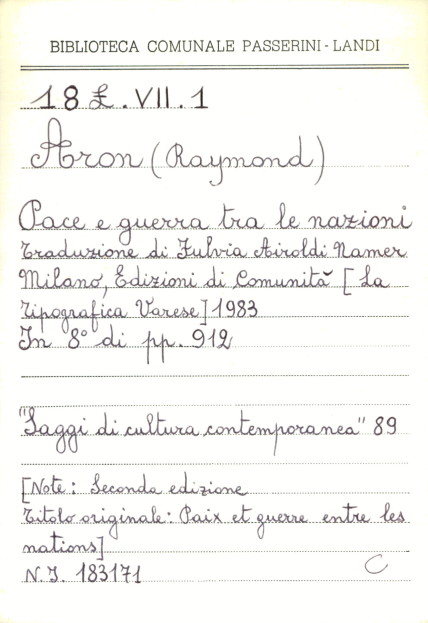 BIBLIOTECA COMUNALE PASSERINI - LANDI
18 £. VII. 1
Aron (Raymond)
Pace e guerra tra le nazioni
Traduzione di Fulvia Airoldi Namer
Milano, Edizioni di Comunità [La
Tipografica Varese] 1983
In 8° di pp. 912
"Saggi di cultura contemporanea" 89
[Note: Seconda edizione
Titolo originale: Paix et guerre entre les
nations]
N.I. 183171
C